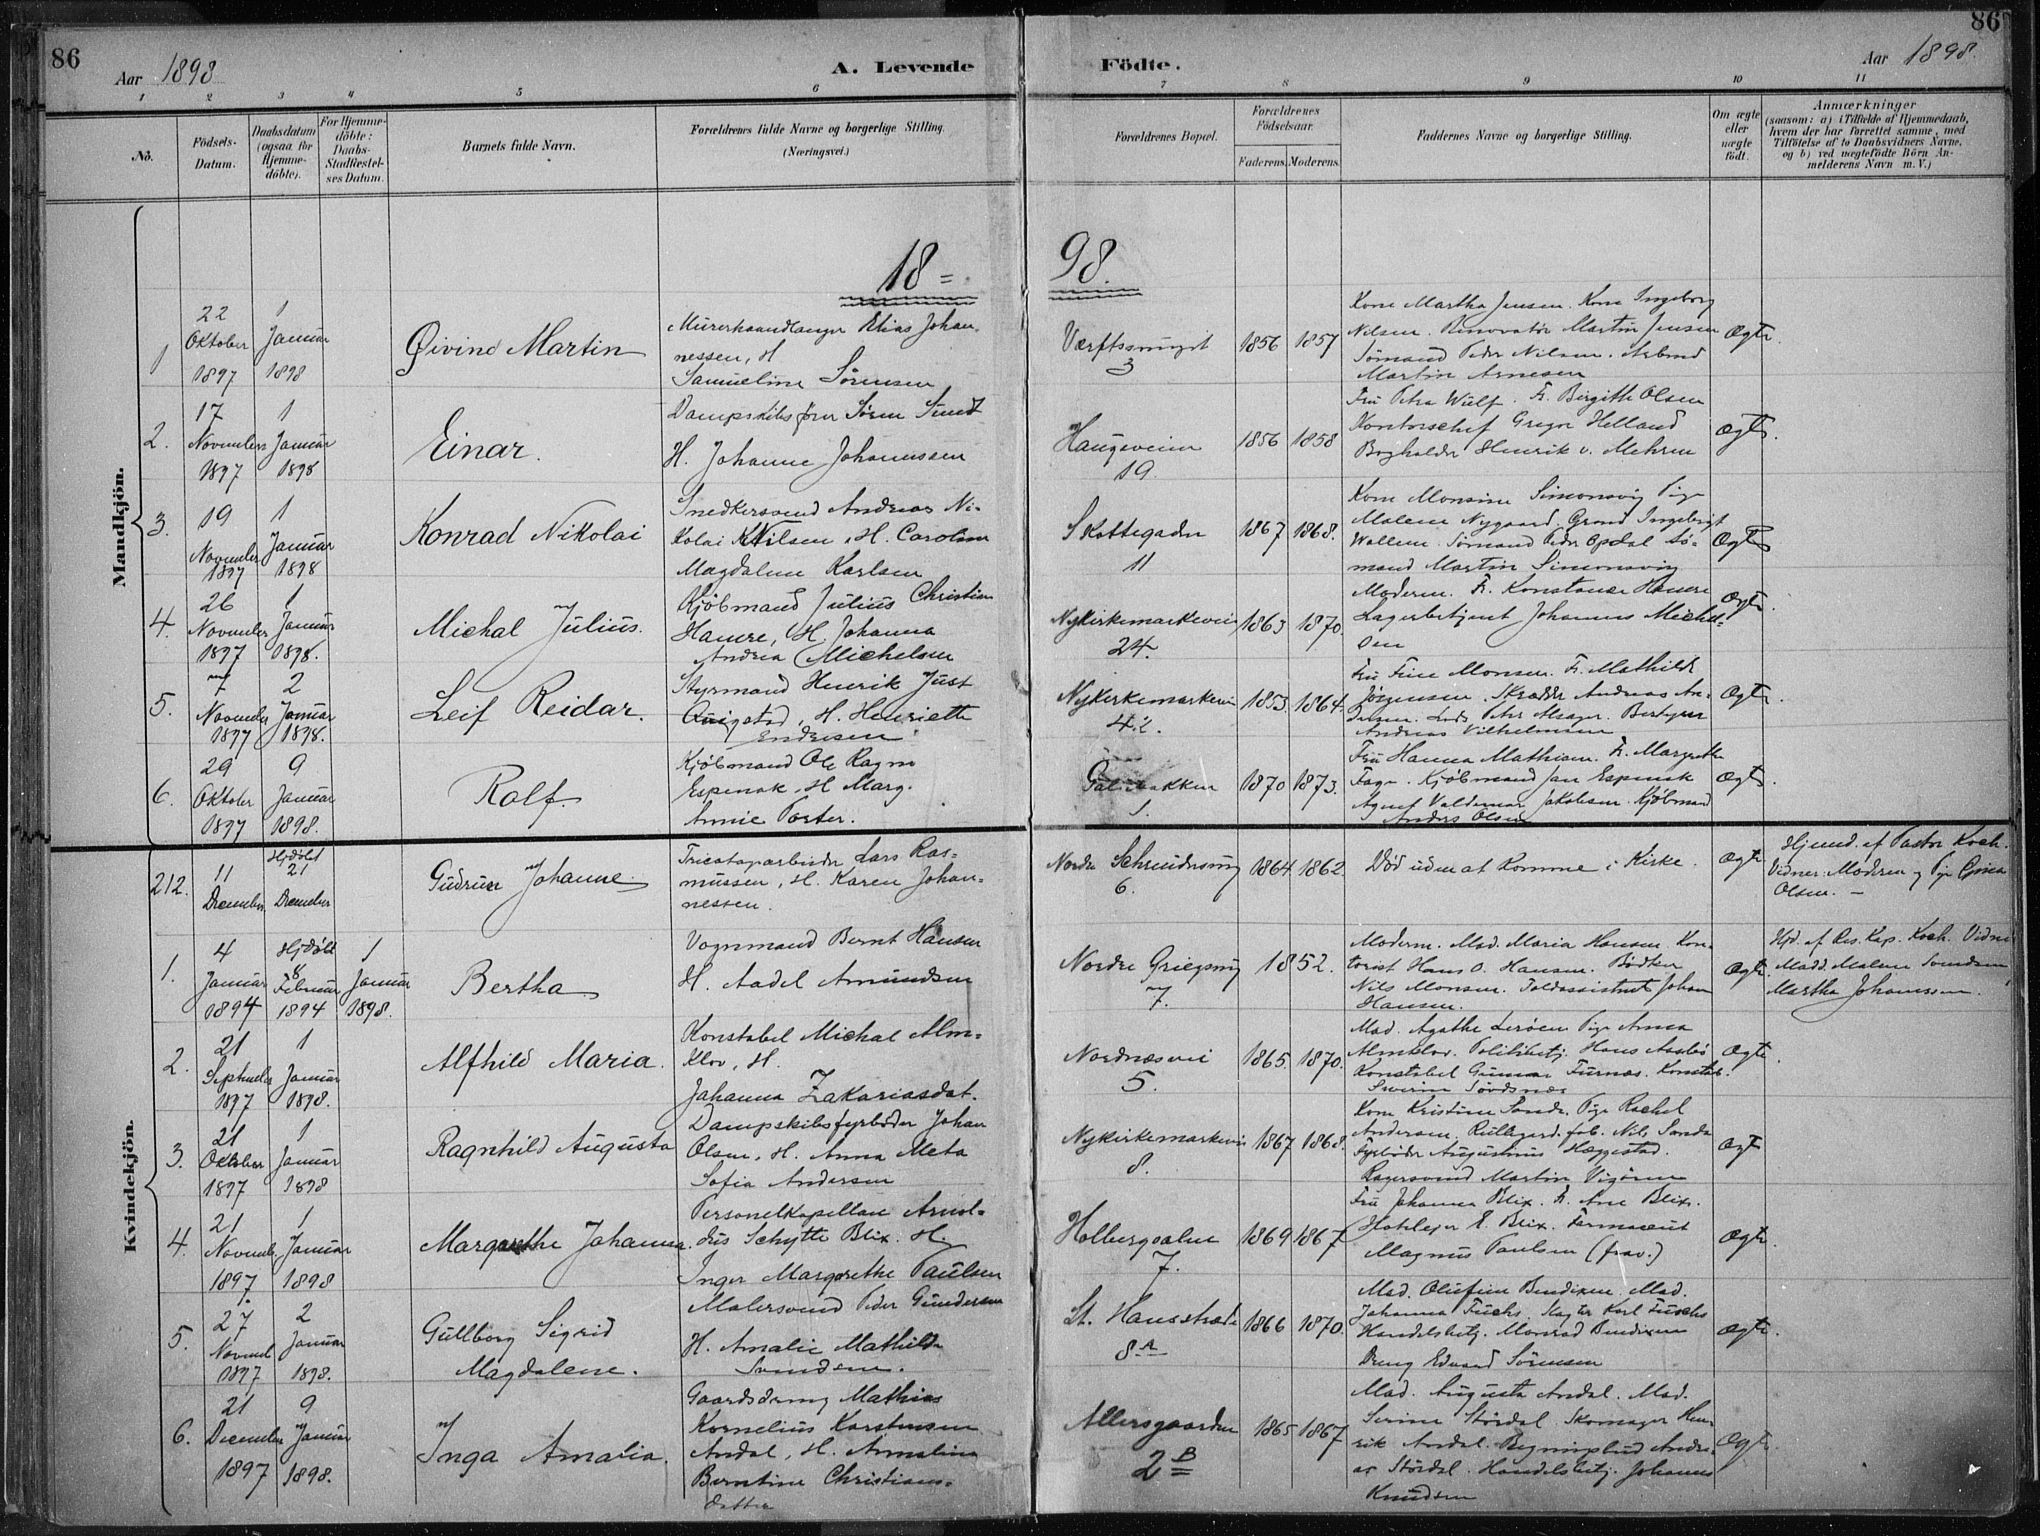 86
Aar 1898
A. Levende
Födte.
Aar 1898.
86
1 2 3 4 5 6 7 8 9 10 11
No.
Födsels-
Datum.
Daabsdatum
(ogsaa for
Hjemme-
döbte).
For Hjemme-
döbte:
Daabs-
Stadfæstel-
ses Datum.
Barnets fulde Navn.
Forældrenes fulde Navne og borgerlige Stilling.
(Næringsvei.)
Forældrenes Bopæl.
Forældrenes
Födselsaar.
Faderens.
Moderens.
Faddernes Navne og borgerlige Stilling.
Om ægte
eller
uægte
født.
Anmærkninger
(saasom: a) i Tilfælde af Hjemmedaab,
hvem der har forrettet samme, med
Tilföielse af to Daabsvidners Navne,
og b) ved uægtefödte Börn An-
melderens Navn m. V.)
18=
98.
Mandkjön.
1
22
Oktober
1897
1
Januar
1898
Øivind Martin
Murerhaandlanger Elias Johan-
nessen, H
Samueline Sörensen
Værftssmuget
3
1856 1857
Kone Martha Jensen. Kone Ingeborg
Nilsen. Renovatör Martin Jensen
Sömand Peder Nilsen. Arbmd
Martin Arnesen
Ægte.
2.
17
November
1897
1
Januar
1898
Einar.
Dampskibsförer Sören Sundt
H. Johanne Johannssen
Haugeveien
19.
1856 1858
Fru Petra Wulf. Fr. Birgitte Olsen
Kontorschef Gregor Helland
Bogholder Henrik v. Mehren
Ægte.
3.
19
November
1897
1
Januar
1898
Konrad Nikolai
Snedkersvend Andreas Ni-
kolai Nilsen, H. Caroline
Magdalene Karlsen
Skottegaden
11
1867 1868.
Kone Monsine Simonsvig Pige
Malene Nygaard. Grosd Ingebrigt
Wallem. Sömand Peder Opdal Sö-
mand Martin Simonsvig
Ægte
4.
26
November
1897
1
Januar
1898.
Michal Julius.
Kjöbmand Julius Christian
Hamre, H. Johanna
Andrea Michelsen
Nykirkemarkevei
24.
1863 1870.
Moderen. Fr. Konstanse Hamre
Lagerbetjent Johannes Michel-
sen
Ægte.
5.
7
November
1897
2
Januar
1898.
Leif Reidar.
Styrmand Henrik Just
Quigstad, H. Henriette
Endresen
Nykirkemarkevei
42.
1853. 1864.
Fru Fine Monsen. Fr. Mathilde
Jörgensen. Skrædder Andreas An-
dersen. Lods Peter Alsager. Bestyrer
Andreas Vilhelmsen
Ægte.
6.
29
Oktober
1897
9
Januar
1898.
Rolf.
Kjöbmand Ole Ragn.
Espenak, H Marg.
Annie Porter.
1.
1870 1873.
Fru Hanna Mathiesen. Fr. Margrethe
Fage. Kjöbmand Jan Espenak
Agent Valdemar Jakobsen. Kjöbmand
Anders Olsen
Ægte.
Kvindekjön.
212.
11
December
Hjdöbt
21
December
Gudrun Johanne
Tricotagearbeider Lars Ras-
mussen, H. Karen Johan-
nessen.
Nordre Schreudersmug
6.
1864 1862.
Död uden at komme i Kirke.
Ægte
Hjemd. af Pastor Koch.
Vidner: Moderen og Pige Gina
Olsen. -
1.
4
Januar
1894
Hjdöbt
8
Februar
1894
1
Januar
1898.
Bertha
Vognmand Bernt Hansen
H. Aadel Amundsen
Nordre Griegsmug
7.
1852.
Moderen. Mad. Maria Hansen. Kon-
torist Hans O. Hansen. Bödker
Nils Monsen. Toldassistent Johan
Hansen.
Ægte
Hjd. af Res. Kap. Koch. Vidner
Madd. Malene Svendsen
Martha Johannssen.
2.
21
September
1897
1
Januar
1898.
Alfhild Maria.
Konstabel Michal Alm-
klov, H.
Johanna Zakariasdat.
Nordnæsvei
5.
1865. 1870.
Mad. Agathe Leröen Pige Anna
Almklov. Politibetj. Hans Aasbö
Konstabel Gunnar Furnæs. Konstab.
Severin Sövdsnæs
Ægte.
3.
21
Oktober
1897
1
Januar
1898
Ragnhild Augusta
Dampskibsfyrböder Johan
Olsen, H. Anna Meta
Sofia Andersen
Nykirkemarkevei
8.
1867 1868.
Kone Kristine Sande. Pige Rachel
Andersen. Rullegard.fab. Nils Sande
Fyrböder Augustinus Hæggestad.
Bagersvend Martin Vigören
Ægte
4.
21
November
1897.
1
Januar
1898
Margarethe Johanna.
Personelkapellan Arnol-
dus Schytte Blix. H.
Inger Margrethe Paulsen
Holbergsalm
7.
1869 1867
Fru Johanna Blix. Fr. Ane Blix.
Hotelejer E. Blix. Farmaceut
Magnus Paulsen (frav.)
Ægte.
5.
27
Novemb
1897
2
Januar
1898.
Gullborg Sigrid
Magdalene.
Malersvend Peder Gundersen
H. Amalie Mathilde
Svendsen.
St. Hansstræde
8A
1866 1870.
Mad. Olufine Bendixen. Mad.
Johanna Fuchs. Slagter Karl Fuchs
Handelsbetj. Monrad Bendixen
Dreng Edvard Sörensen
Ægte.
6.
21
December
1897
9
Januar
1898.
Inga Amalia.
Gaardsdreng Mathias
Kornelius Karstensen
Andal, H. Annalina
Berntine Christians-
datter
Allersgaarden
2B
1865 1867
Mad. Augusta Andal. Mad.
Serine Stördal. Skomager Hen-
rik Andal. Andre-
as Stördal. Handelsbetj. Johannes
Knudsen
Ægte.